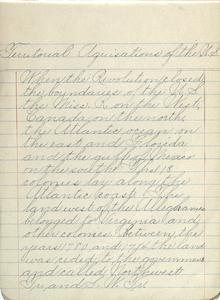 Territorial Aquisations of the U.S
When the Revolution closed
the boundaries of the U.S.
the Miss. R. on the West,
Canada on the north,
the Atlantic ocean on
the east and Florida
and the gulf of Mexico
on the south. The 13
colonies lay along the
Atlantic coast. The
land west of the Alleghanies
belonged to Virginia and
other colonies. Between the
years 1781 and 1786 the land
was ceded to the government
and called Northwest
Ter. and S. W. Ter.